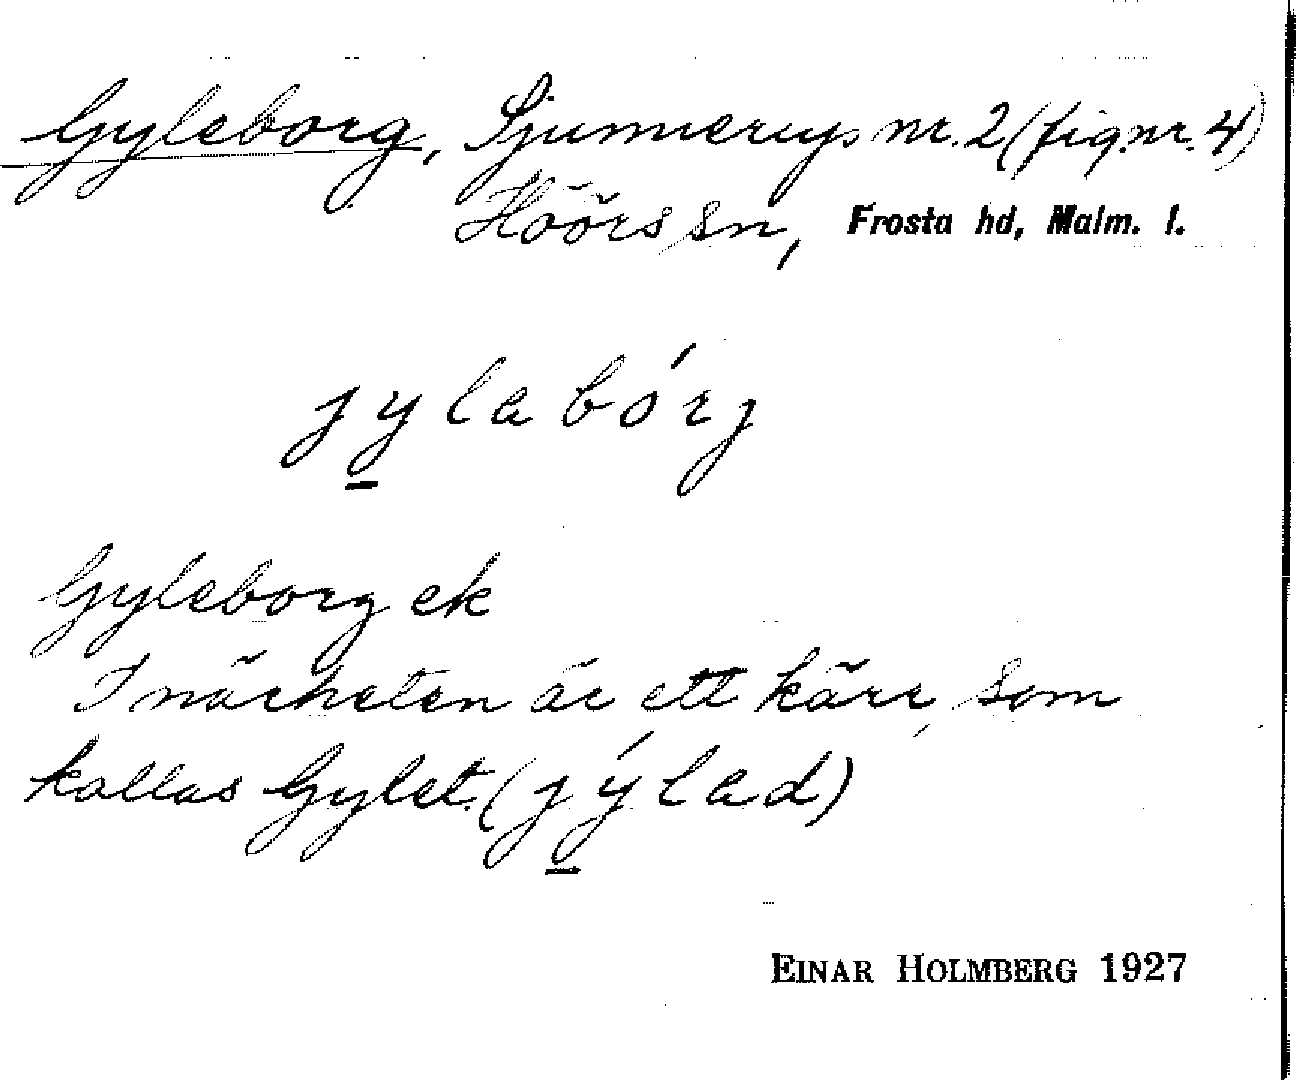 Gyleborg, Sjunnerup nr. 2 (fig.nr. 4)
Höörs sn, Frosta hd, Malm. l.
jylabórj
Gyleborg ek
I närheten är ett kärr, som
kallas Gylet. (jýlad)
EINAR HOLMBERG 1927